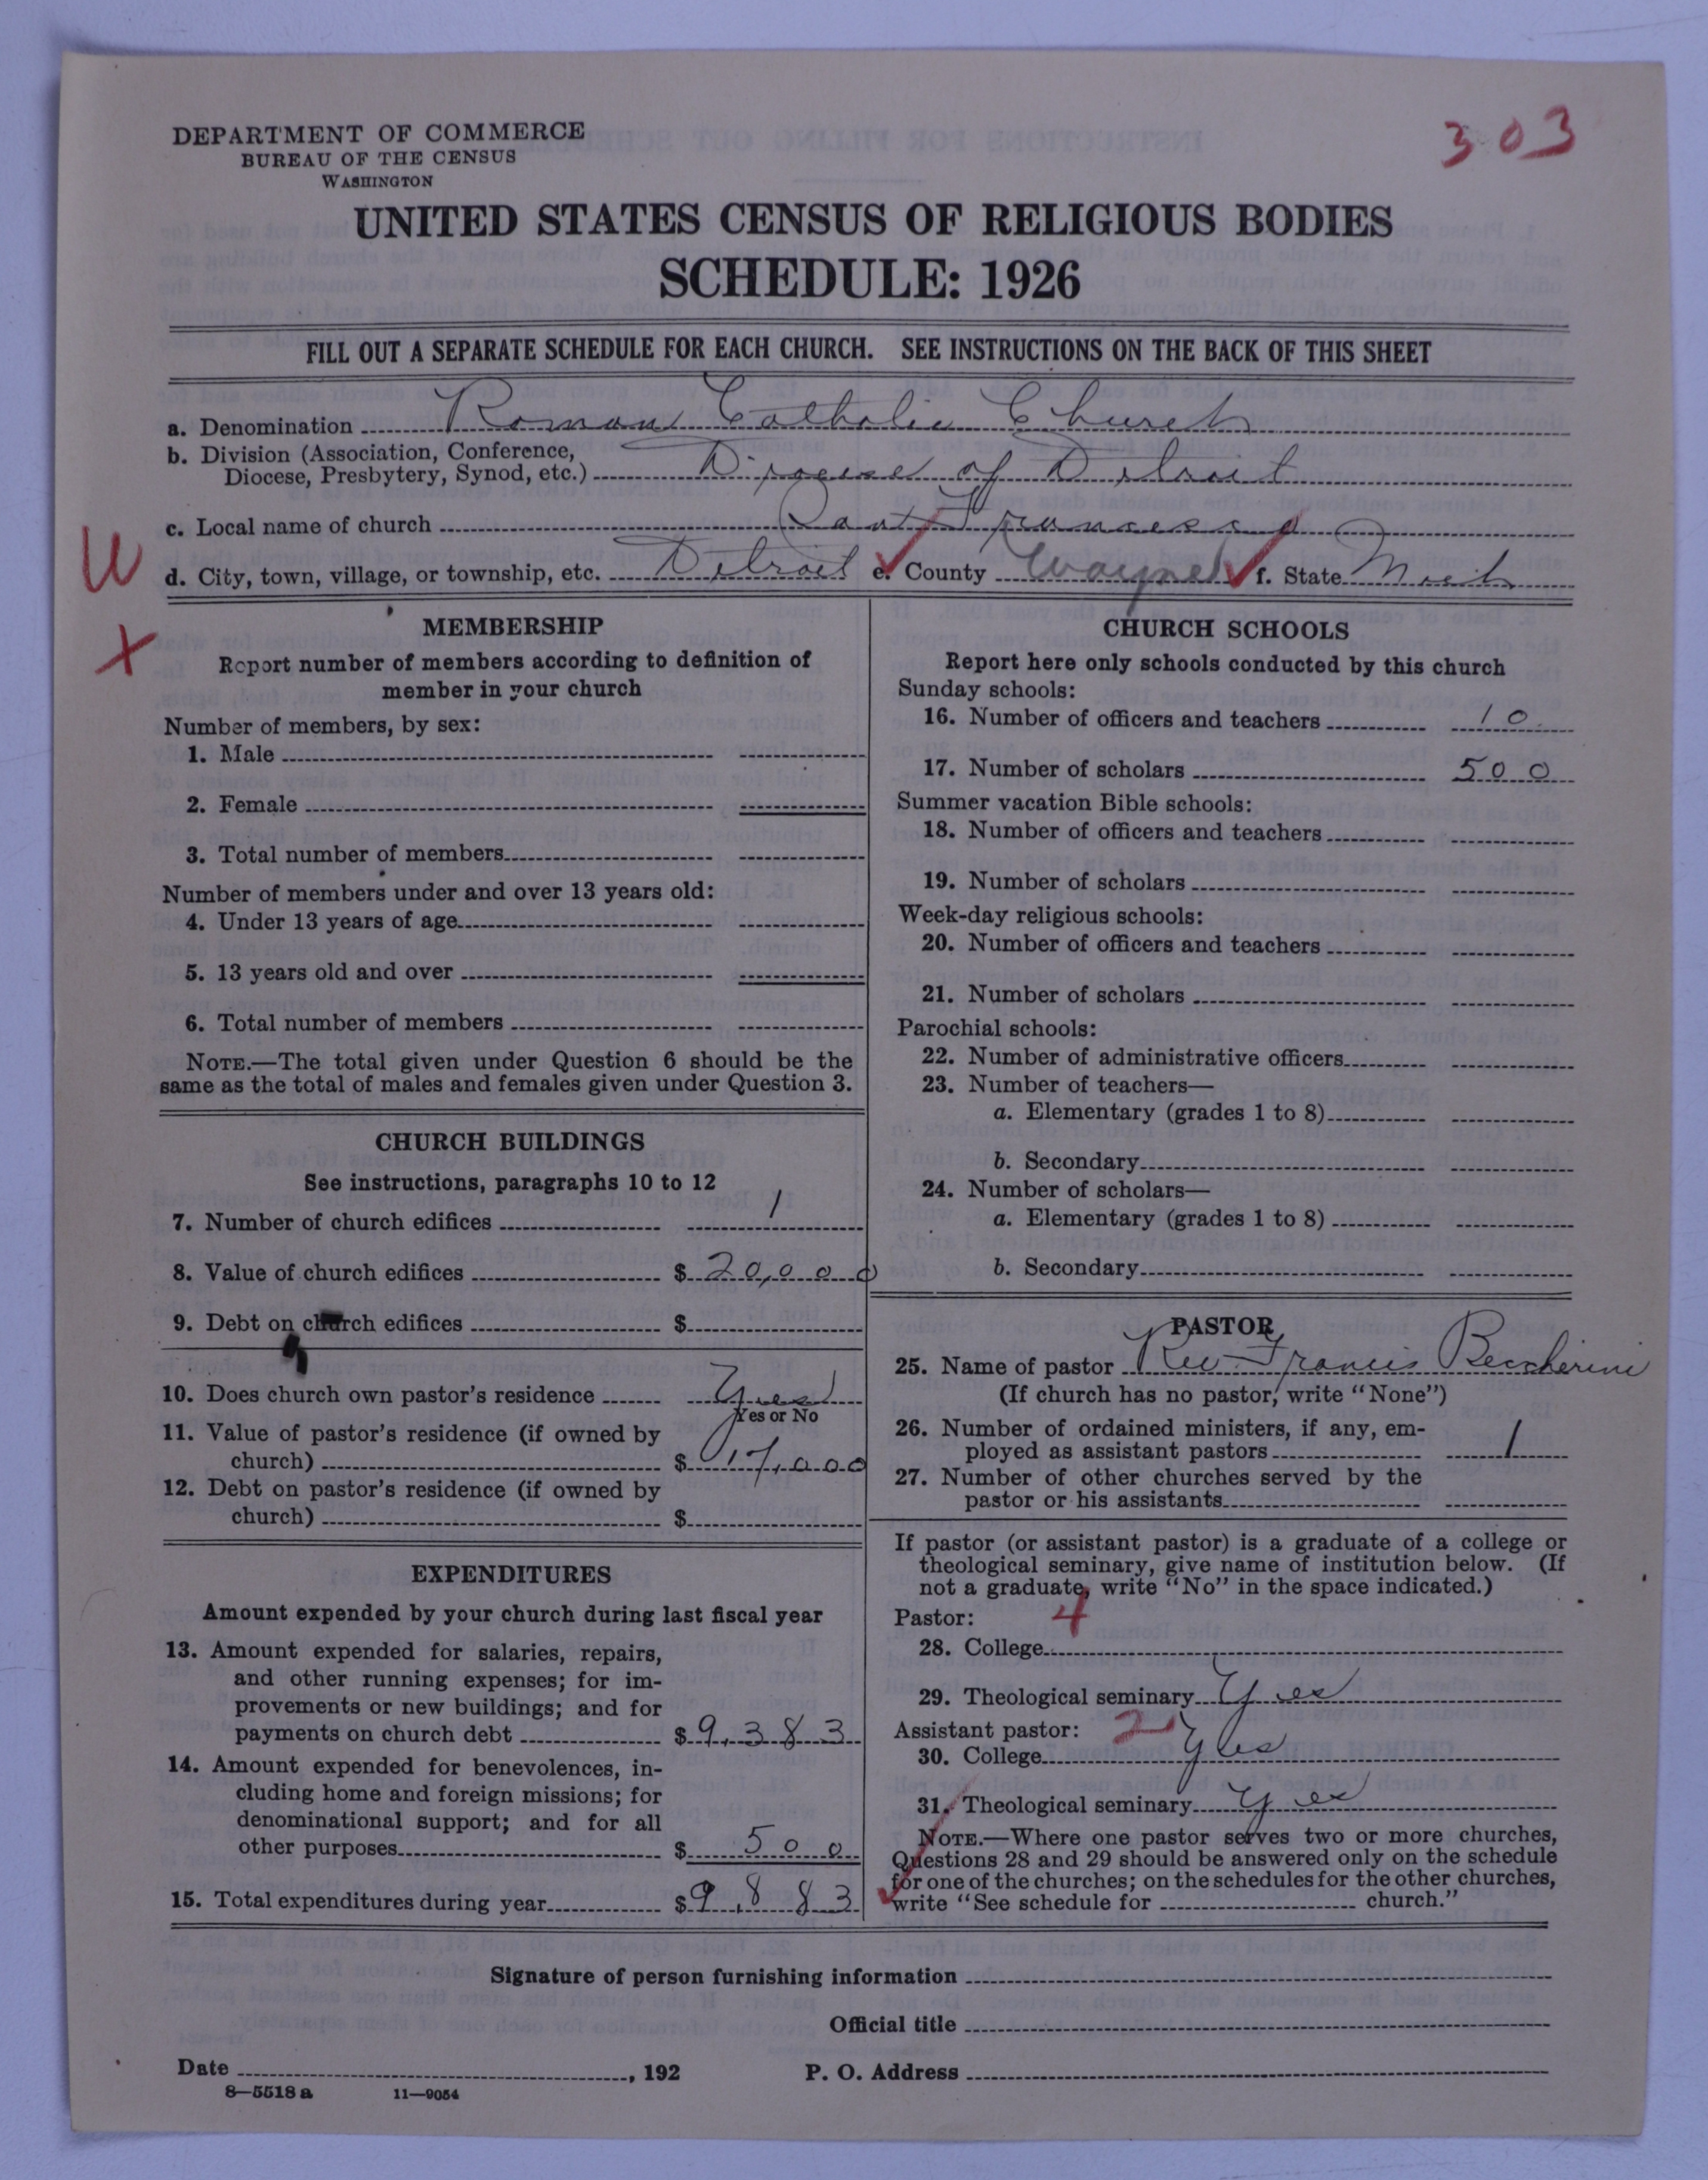 303
DEPARTMENT OF COMMERCE
BUREAU OF THE CENSUS
WASHINGTON
UNITED STATES CENSUS OF RELIGIOUS BODIES
SCHEDULE: 1926
FILL OUT A SEPARATE SCHEDULE FOR EACH CHURCH. SEE INSTRUCTIONS ON THE BACK OF THIS SHEET
a. Denomination Roman Catholic Church
b. Division (Association, Conference,
Diocese, Presbytery, Synod, etc.) Diocese of Detroit
c. Local name of church Sant Francesco
W
d. City, town, village, or township, etc. Detroit e. County Wayne f. State Mich
X
MEMBERSHIP
Report number of members according to definition of
member in your church
Number of members, by sex:
1. Male
2. Female
3. Total number of members
Number of members under and over 13 years old:
4. Under 13 years of age
5. 13 years old and over
6. Total number of members
NOTE.—The total given under Question 6 should be the
same as the total of males and females given under Question 3.
CHURCH BUILDINGS
See instructions, paragraphs 10 to 12
7. Number of church edifices 1
8. Value of church edifices $ 20,000
9. Debt on church edifices $
10. Does church own pastor's residence Yes
Yes or No
11. Value of pastor's residence (if owned by
church) $ 17,000
12. Debt on pastor's residence (if owned by
church) $
EXPENDITURES
Amount expended by your church during last fiscal year
13. Amount expended for salaries, repairs,
and other running expenses; for im-
provements or new buildings; and for
payments on church debt $ 9,383
14. Amount expended for benevolences, in-
cluding home and foreign missions; for
denominational support; and for all
other purposes $ 500
15. Total expenditures during year $ 9,883
CHURCH SCHOOLS
Report here only schools conducted by this church
Sunday schools:
16. Number of officers and teachers 10
17. Number of scholars 500
Summer vacation Bible schools:
18. Number of officers and teachers
19. Number of scholars
Week-day religious schools:
20. Number of officers and teachers
21. Number of scholars
Parochial schools:
22. Number of administrative officers
23. Number of teachers—
a. Elementary (grades 1 to 8)
b. Secondary
24. Number of scholars—
a. Elementary (grades 1 to 8)
b. Secondary
PASTOR
25. Name of pastor Rev. Francis Beccherini
(If church has no pastor, write "None")
26. Number of ordained ministers, if any, em-
ployed as assistant pastors 1
27. Number of other churches served by the
pastor or his assistants
If pastor (or assistant pastor) is a graduate of a college or
theological seminary, give name of institution below. (If
not a graduate, write "No" in the space indicated.)
Pastor: 4
28. College
29. Theological seminary Yes
Assistant pastor: 2
30. College Yes
31. Theological seminary Yes
NOTE.—Where one pastor serves two or more churches,
Questions 28 and 29 should be answered only on the schedule
for one of the churches; on the schedules for the other churches,
write "See schedule for church."
Signature of person furnishing information
Official title
Date , 192 P. O. Address
8—5518 a 11—9054